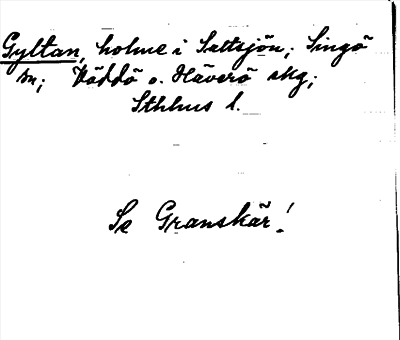 Gyltan, holme i Saltsjön; Singö
sn; Väddö o. Häverö skg;
Sthlms l.
Se Granskär!